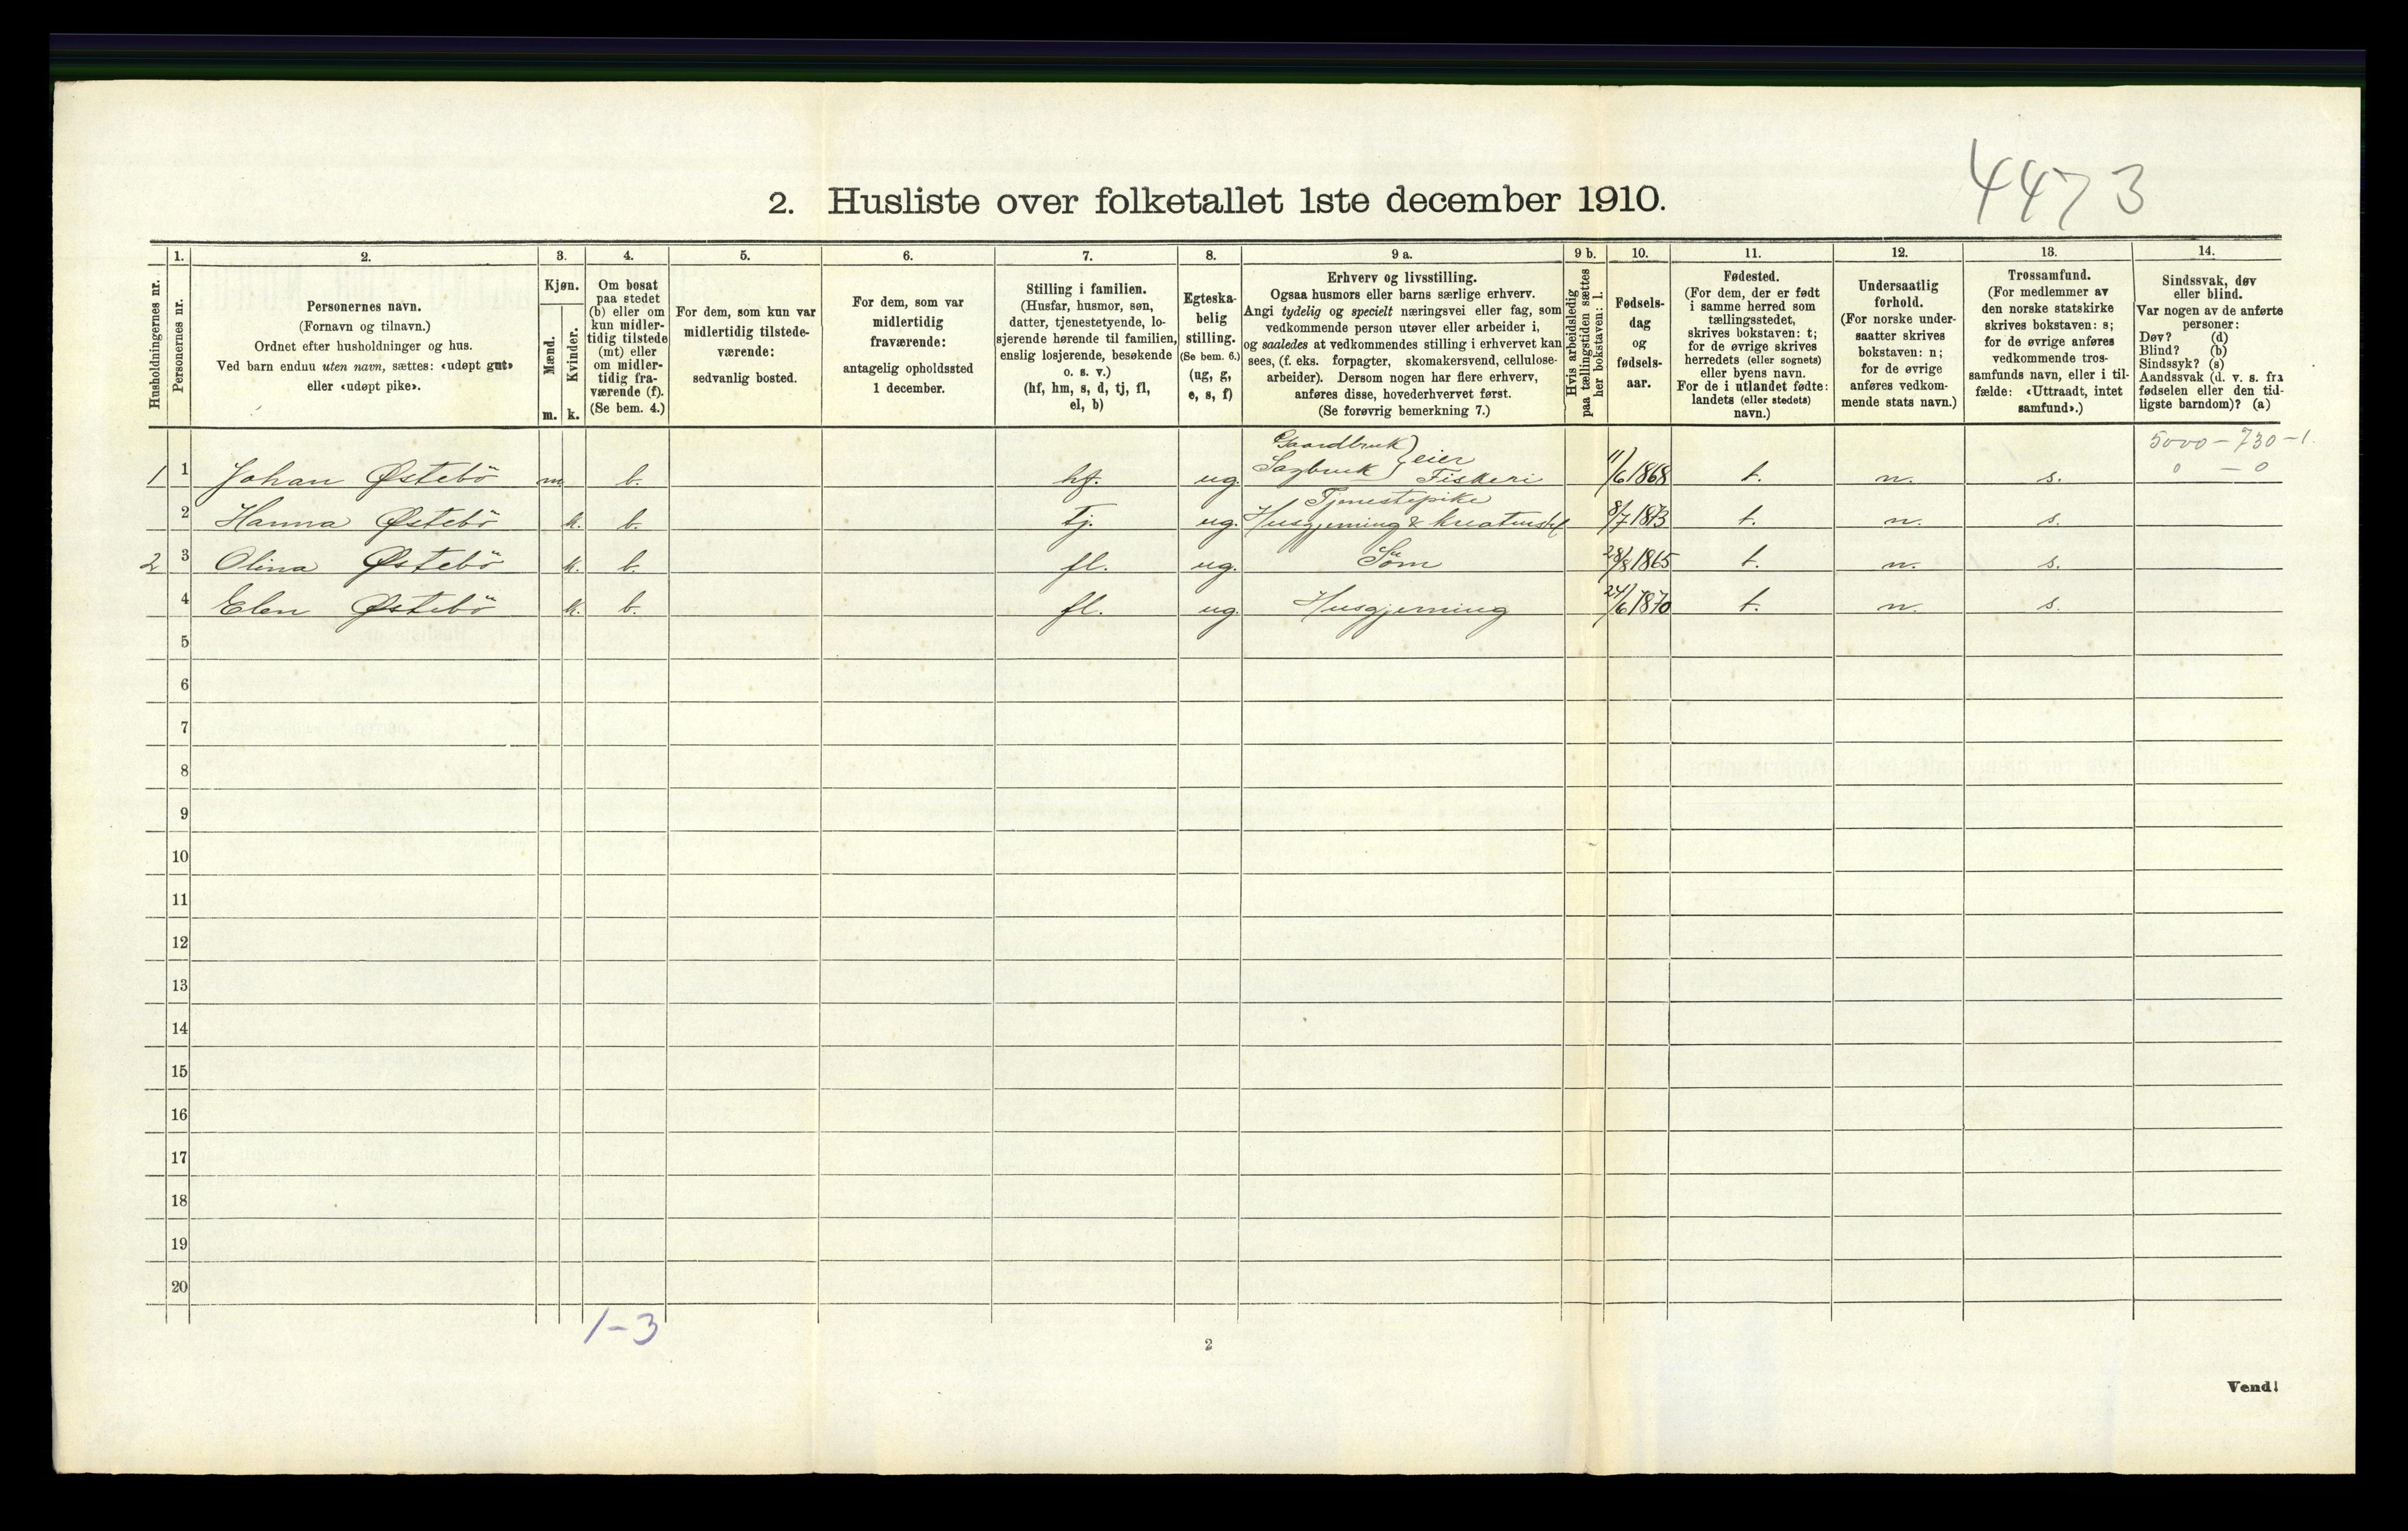 4473
2. Husliste over folketallet 1ste december 1910.
Husholdningernes nr.
1.
Personernes nr.
2.
Personernes navn.
(Fornavn og tilnavn.)
Ordnet efter husholdninger og hus.
Ved barn endnu uten navn, sættes: «udøpt gut»
eller «udøpt pike».
3.
Kjøn.
Mænd.
m.
Kvinder.
k.
4.
Om bosat
paa stedet
(b) eller om
kun midler-
tidig tilstede
(mt) eller
om midler-
tidig fra-
værende (f).
(Se bem. 4.)
5.
For dem, som kun var
midlertidig tilstede-
værende:
sedvanlig bosted.
6.
For dem, som var
midlertidig
fraværende:
antagelig opholdssted
1 december.
7.
Stilling i familien.
(Husfar, husmor, søn,
datter, tjenestetyende, lo-
sjerende hørende til familien,
enslig losjerende, besøkende
o. s. v.)
(hf, hm, s, d, tj, fl,
el, b)
8.
Egteska-
belig
stilling.
(Se bem. 6.)
(ug, g,
e, s, f)
9 a.
Erhverv og livsstilling.
Ogsaa husmors eller barns særlige erhverv.
Angi tydelig og specielt næringsvei eller fag, som
vedkommende person utøver eller arbeider i,
og saaledes at vedkommendes stilling i erhvervet kan
sees, (f. eks. forpagter, skomakersvend, cellulose-
arbeider). Dersom nogen har flere erhverv,
anføres disse, hovederhvervet først.
(Se forøvrig bemerkning 7.)
9 b.
Hvis arbeidsledig
paa tællingstiden sættes
her bokstaven: l.
10.
Fødsels-
dag
og
fødsels-
aar.
11.
Fødested.
(For dem, der er født
i samme herred som
tællingsstedet,
skrives bokstaven: t;
for de øvrige skrives
herredets (eller sognets)
eller byens navn.
For de i utlandet fødte:
landets (eller stedets)
navn.)
12.
Undersaatlig
forhold.
(For norske under-
saatter skrives
bokstaven: n;
for de øvrige
anføres vedkom-
mende stats navn.)
13.
Trossamfund.
(For medlemmer av
den norske statskirke
skrives bokstaven: s;
for de øvrige anføres
vedkommende tros-
samfunds navn, eller i til-
fælde: «Uttraadt, intet
samfund».)
14.
Sindssvak, døv
eller blind.
Var nogen av de anførte
personer:
Døv? (d)
Blind? (b)
Sindssyk? (s)
Aandssvak (d. v. s. fra
fødselen eller den tid-
ligste barndom)? (a)
5000 – 730 – 1.
0 – 0
Gaardbruk
1 1 Johan Østebö m b. hf. ug. Sagbruk } eier Fiskeri 11/6 1868 t. n. s.
Tjenestepike
2 Hanna Østebö k. b. Tj. ug. Husgjerning & kreaturstel 8/7 1873 t. n. s.
2 3 Olina Østebö k. b. fl. ug. Söm 28/8 1865 t. n. s.
4 Elen Østebö k. b. fl. ug. Husgjerning 24/6 1870 t. n. s.
5
6
7
8
9
10
11
12
13
14
15
16
17
18
19
20
1–3
2
Vend!